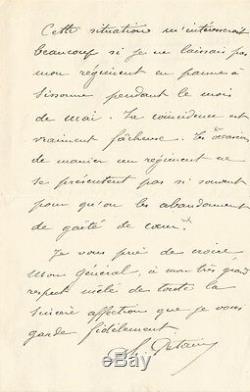 Cette situation m'intéresserait
beaucoup si je ne laissais pas
mon régiment en panne à
Sissonne pendant le mois
de mai. La coincidence est
vraiment fâcheuse. Les occasions
de manier un régiment ne
se présentent pas si souvent
pour qu'on les abandonne
de gaîté de cœur.
Je vous prie de croire
mon général, à mon très grand
respect mêlé de toute la
sincère affection que je vous
garde fidèlement.
Ph. Pétain